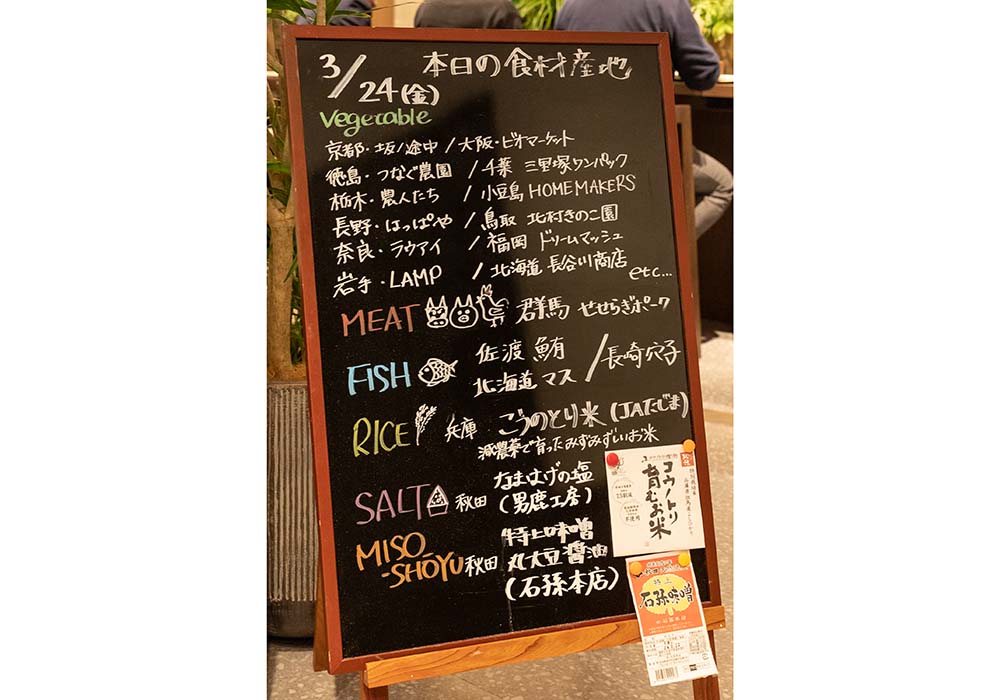 3/24(金)
本日の食材産地
Vegetable
京都・坂ノ途中 / 大阪・ビオマーケット
徳島・つなぐ農園 / 千葉 三里塚ワンパック
栃木・農人たち / 小豆島 HOMEMAKERS
長野・はっぱや / 鳥取 北村きのこ園
奈良・ラウアイ / 福岡 ドリームマッシュ
岩手・LAMP / 北海道 長谷川商店
etc...
MEAT 群馬 せせらぎポーク
FISH 佐渡 鮪 / 長崎穴子
北海道 マス
RICE 兵庫 こうのとり米 (JAたじま)
減農薬で育ったみずみずしいお米
SALT 秋田 なまはげの塩
(男鹿工房)
MISO-
-SHOYU 秋田 特上味噌
丸大豆醤油
(石孫本店)
コウノトリ
育むお米
特上
石孫味噌